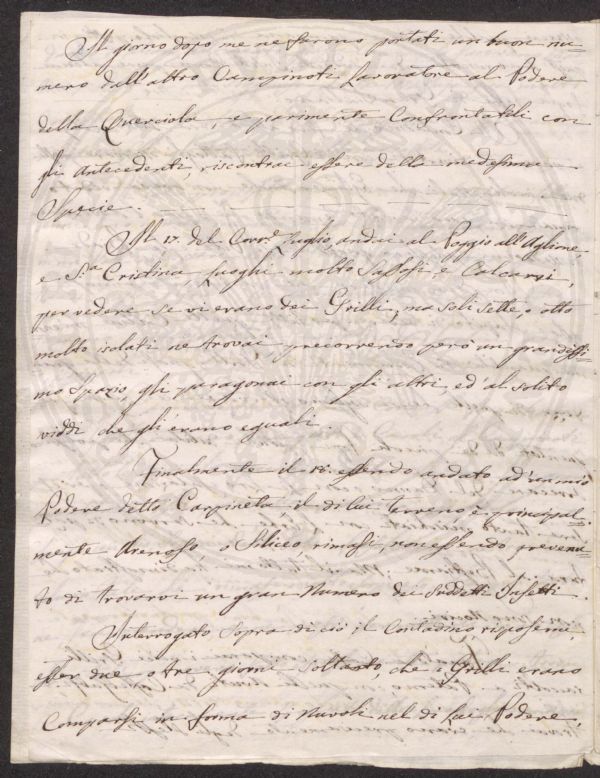 Il giorno dopo me ne furono portati un buon nu=
mero dall'altro Campinoti Lavoratore al Podere
della Querciola, e parimente Confrontatili con
gli Antecedenti, riscontrai essere della medesima
Specie.
Il 17. del Corr.e Luglio, andai al Poggio all'Aglione,
e S.ta Cristina, Luoghi molto Sassosi e Calcarei,
per vedere se vi erano dei Grilli, ma soli sette, o otto
molto isolati ne trovai precorrendo però un grandissi
mo Spazio, gli paragonai con gli altri, ed al solito
viddi che gl'erano eguali.
Finalmente il 18. essendo andato ad un mio
Podere detto Carpineta, il di cui terreno è principal=
mente Arenoso, o Siliceo, rimasi, non essendo prevenu=
to di trovarvi un gran Numero dei Suddetti Insetti.
Interrogato Sopra di ciò il Contadino, risposemi,
esser due o tre giorni Soltanto, che i Grilli erano
Comparsi in forma di Nuvoli nel di Lui Podere,